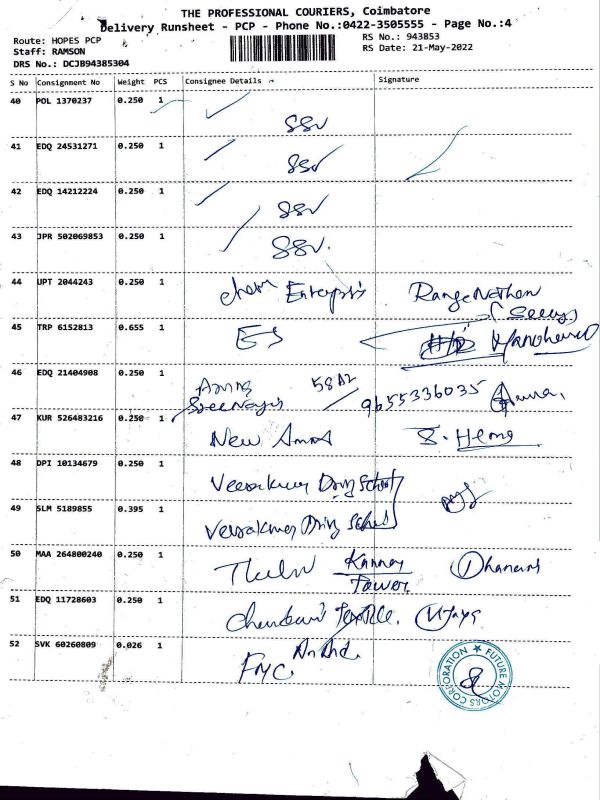 THE PROFESSIONAL COURIERS, Coimbatore
Delivery Runsheet - PCP - Phone No.:0422-3505555 - Page No.:4
Route: HOPES PCP
Staff: RAMSON
DRS No.: DCJB94385304
RS No.: 943853
RS Date: 21-May-2022
S No Consignment No Weight PCS Consignee Details Signature
40 POL 1370237 0.250 1
SSV
41 EDQ 24531271 0.250 1
SSV
42 EDQ 14212224 0.250 1
SSV
43 JPR 502069853 0.250 1
SSV.
44 UPT 2044243 0.250 1
45 TRP 6152813 0.655 1
46 EDQ 21404908 0.250 1
58A2 9655336035
47 KUR 526483216 0.250 1
New
48 DPI 10134679 0.250 1
49 SLM 5189855 0.395 1
50 MAA 264800240 0.250 1
Tower
51 EDQ 11728603 0.250 1
52 SVK 60260809 0.026 1
FMC.
FUTURE MOTORS CORPORATION